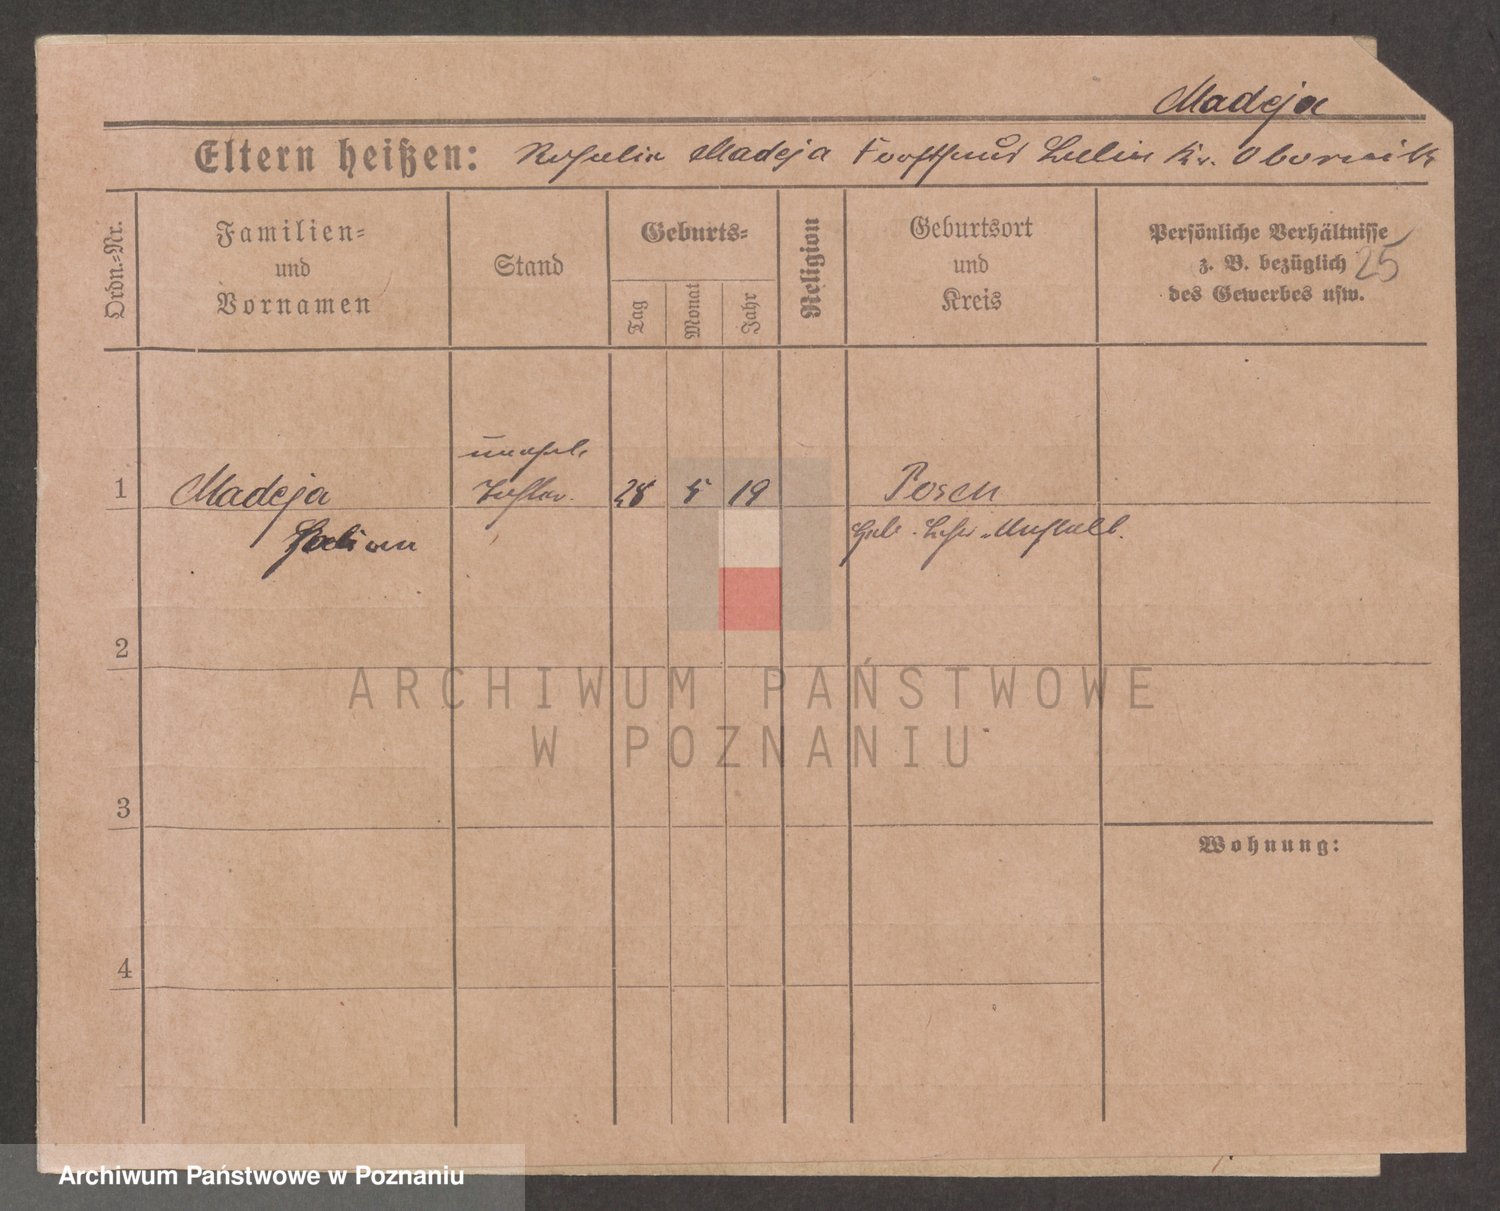 Madeja
Eltern heißen: Rosalia Madeja Forsthaus Kr. Obornik
Ordn.-Nr.
Familien-
und
Vornamen
Stand
Geburts-
Tag
Monat
Jahr
Religion
Geburtsort
und
Kreis
Persönliche Verhältnisse
z. B. bezüglich
des Gewerbes usw.
25
unehel.
1 Madeja Tochter. 28 5 19 Posen
Heb. Lehr-Anstalt.
2
3
4
Wohnung:
ARCHIWUM PAŃSTWOWE
W POZNANIU
Archiwum Państwowe w Poznaniu